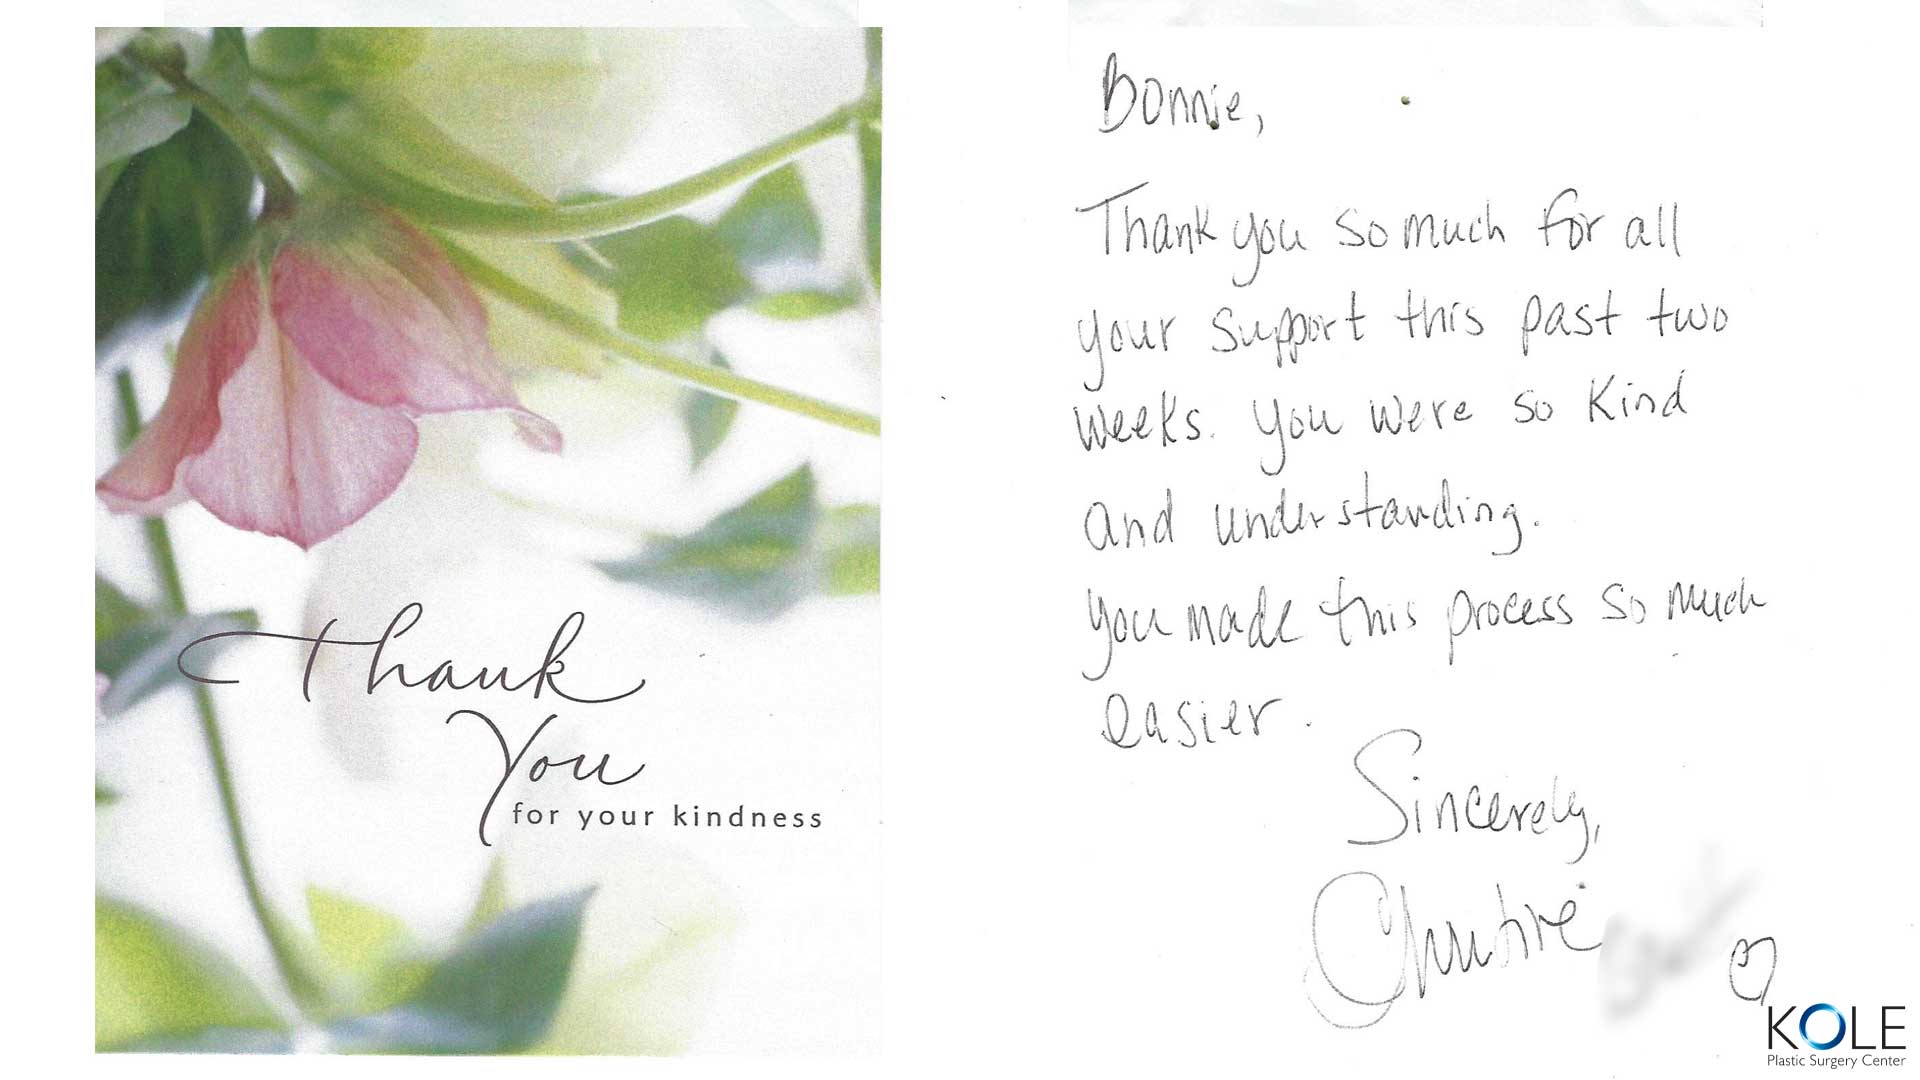 Thank
You
for your kindness
Bonnie,
Thank you so much for all
your support this past two
weeks. You were so kind
and understanding.
You made this process so much
easier.
Sincerely,
Christine
KOLE
Plastic Surgery Center